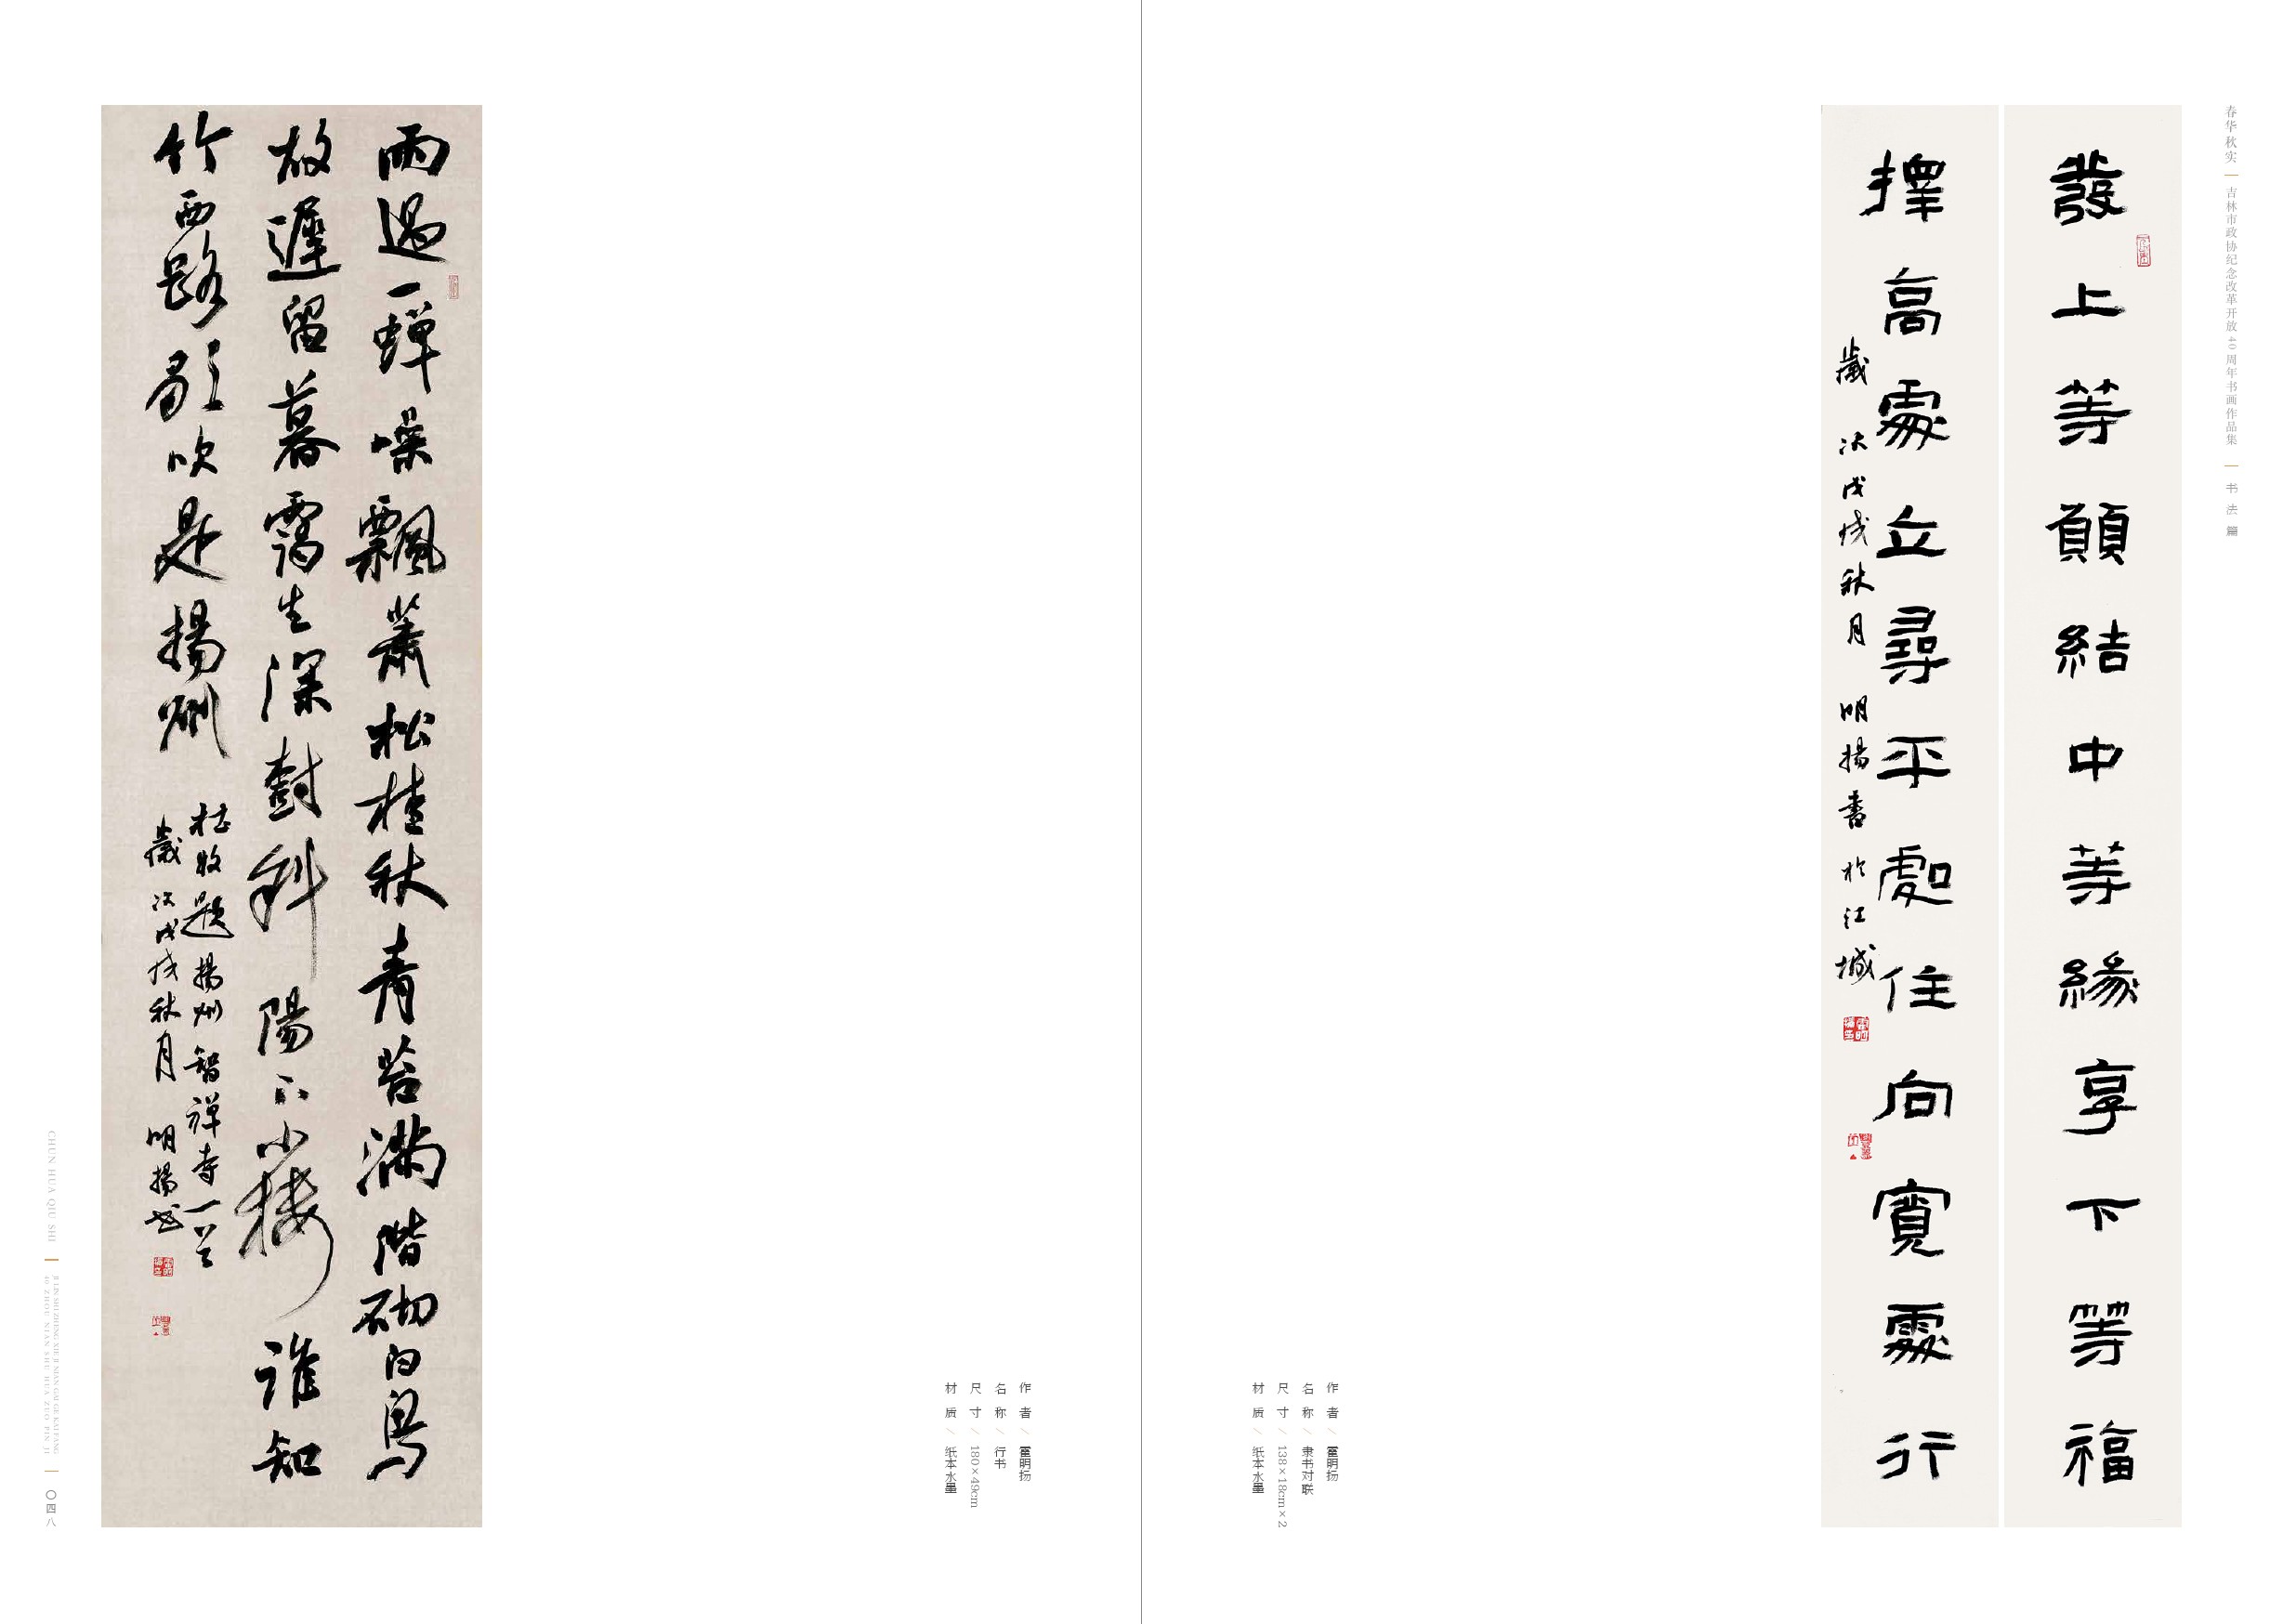 春华秋实
吉林市政协纪念改革开放40周年书画作品集
书法篇
發上等願結中等緣享下等福
擇高處立尋平處住向寬處行
歲次戊戌秋月 明揚書於江城
作者／霍明扬
名称／隶书对联
尺寸／138×18cm×2
材质／纸本水墨
作者／霍明扬
名称／行书
尺寸／180×49cm
材质／纸本水墨
雨過一蟬噪飄蕭松桂秋青苔滿階砌白鳥
故遲留暮靄生深樹斜陽下小樓誰知
竹西路歌吹是揚州
杜牧題揚州智禪寺一首
歲次戊戌秋月 明揚书
CHUN HUA QIU SHI
JI LIN SHI ZHENG XIE JI NIAN GAI GE KAI FANG
40 ZHOU NIAN SHU HUA ZUO PIN JI
〇四八